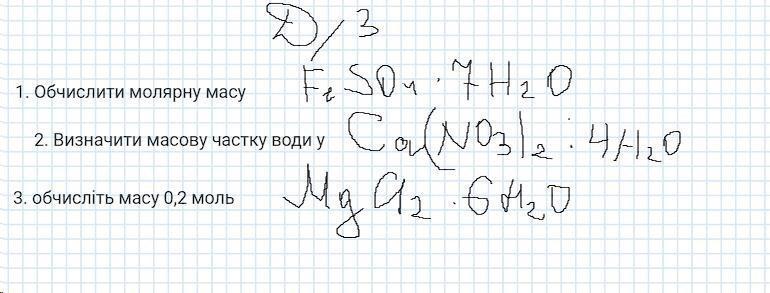 Д/З
1. Обчислити молярну масу FeSO4·7H2O
2. Визначити масову частку води у Ca(NO3)2·4H2O
3. обчисліть масу 0,2 моль MgCl2·6H2O